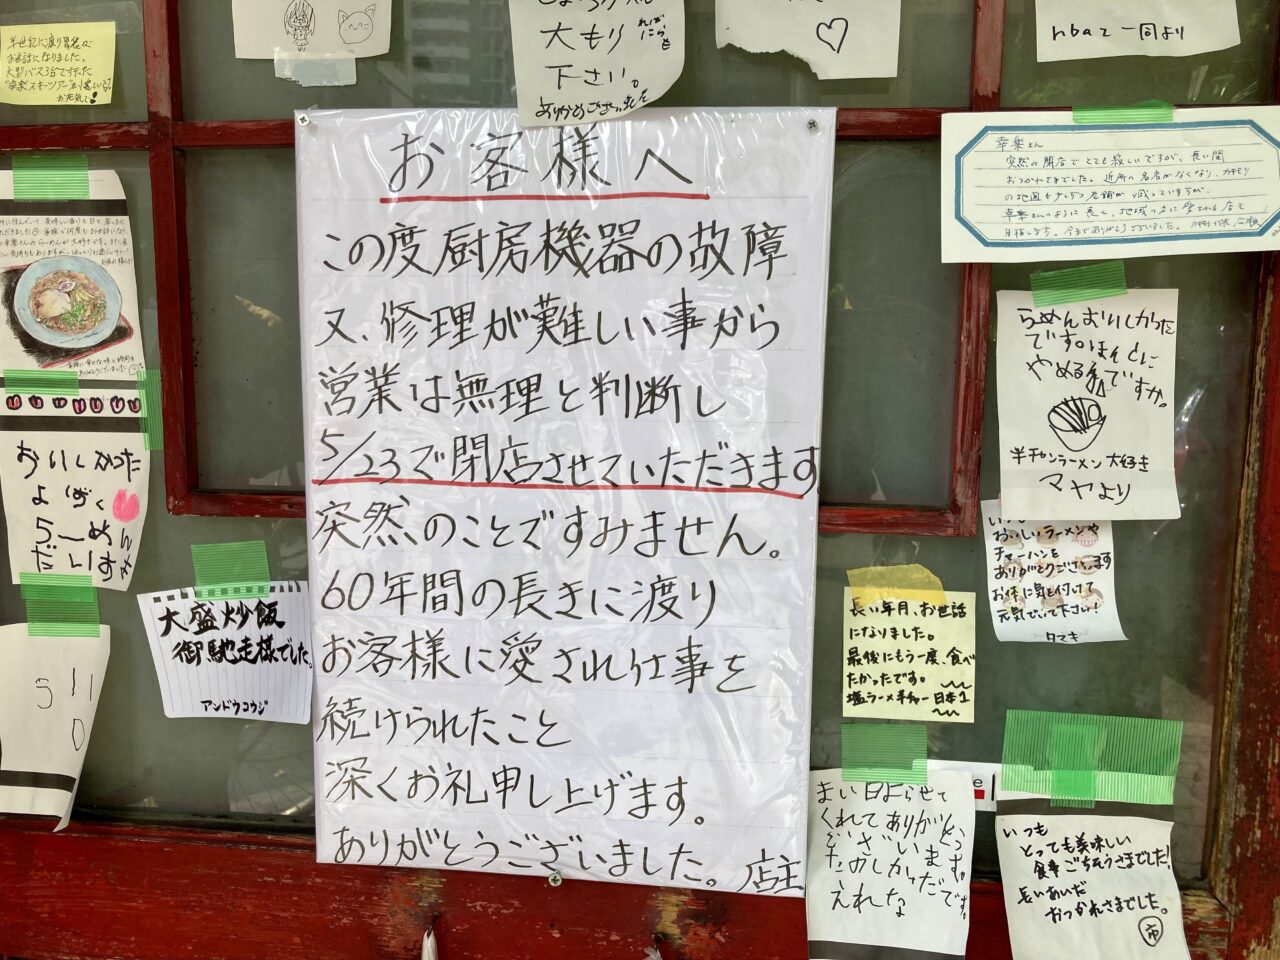 半世紀に渡り皆様な
お世話になりました。
大型バス3台で行った
下さい。
大もり
ありがとうございました
一同より
お客様へ
この度厨房機器の故障
又、修理が難しい事から
営業は無理と判断し
5/23で閉店させていただきます
突然のことですみません。
60年間の長きに渡り
お客様に愛され仕事を
続けられたこと
深くお礼申し上げます。
ありがとうございました。店主
幸楽さん
突然の閉店でとても寂しいですが、長い間
おつかれさまでした。近所の名店がなくなり、
の地図も少しずつ店舗が減っていますが、
幸楽さんのように長く、地域の方に愛される店を
目指します。今までありがとうございました。
らめんおいしかった
です。ほんとに
やめるんですか。
半チャンラーメン大好き
マヤより
おいしかった
よ ずっく
らーめん
だいすき
大盛炒飯
御馳走様でした。
アンドウコウジ
おいしいラーメンや
チャーハンを
ありがとうございます
お体に気を付けて
元気でいて下さい!
タマキ
長い年月、お世話
になりました。
最後にもう一度、食べ
たかったです。
塩ラーメン半チャー日本1
511
0
まい日よらせて
くれてありがとう
ございます。
たのしかったです。
えれな
いつも
とっても美味しい
食事ごちそうさまでした!
長いあいだ
おつかれさまでした。